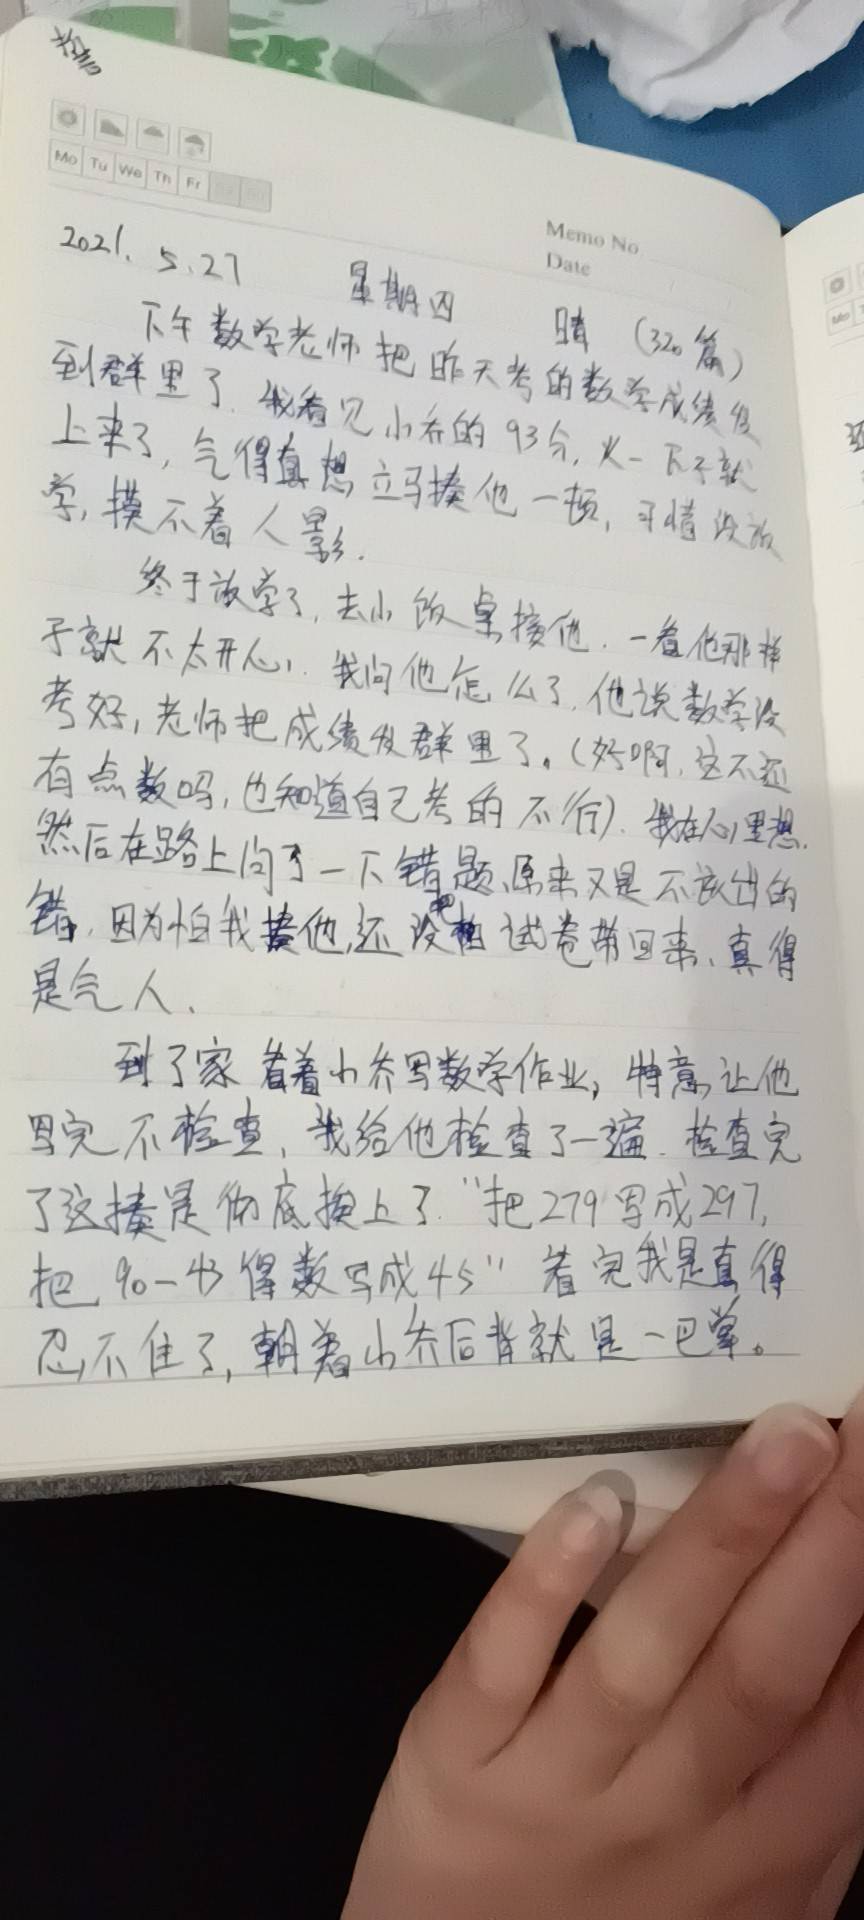 Mo Tu We Th Fr
Memo No
Date
2021. 5.27 星期四 晴 (320篇)
下午数学老师把昨天考的数学成绩发
到群里了.我看见小乔的93分,火一下子就
上来了,气得真想立马揍他一顿,可惜没放
学,摸不着人影.
终于放学了,去小饭桌接他.一看他那样
子就不太开心.我问他怎么了.他说数学没
考好,老师把成绩发群里了。(好啊,这不还
有点数吗,也知道自己考的不行).我在心里想.
然后在路上问了一下错题、原来又是不该出的
错,因为怕我揍他,还没把试卷带回来、真得
是气人、
到了家看着小乔写数学作业,特意让他
写完不检查,我给他检查了一遍.检查完
了这揍是彻底挨上了."把279写成297,
把90-43得数写成45"看完我是真得
忍不住了,朝着小乔后背就是一巴掌。
Mo